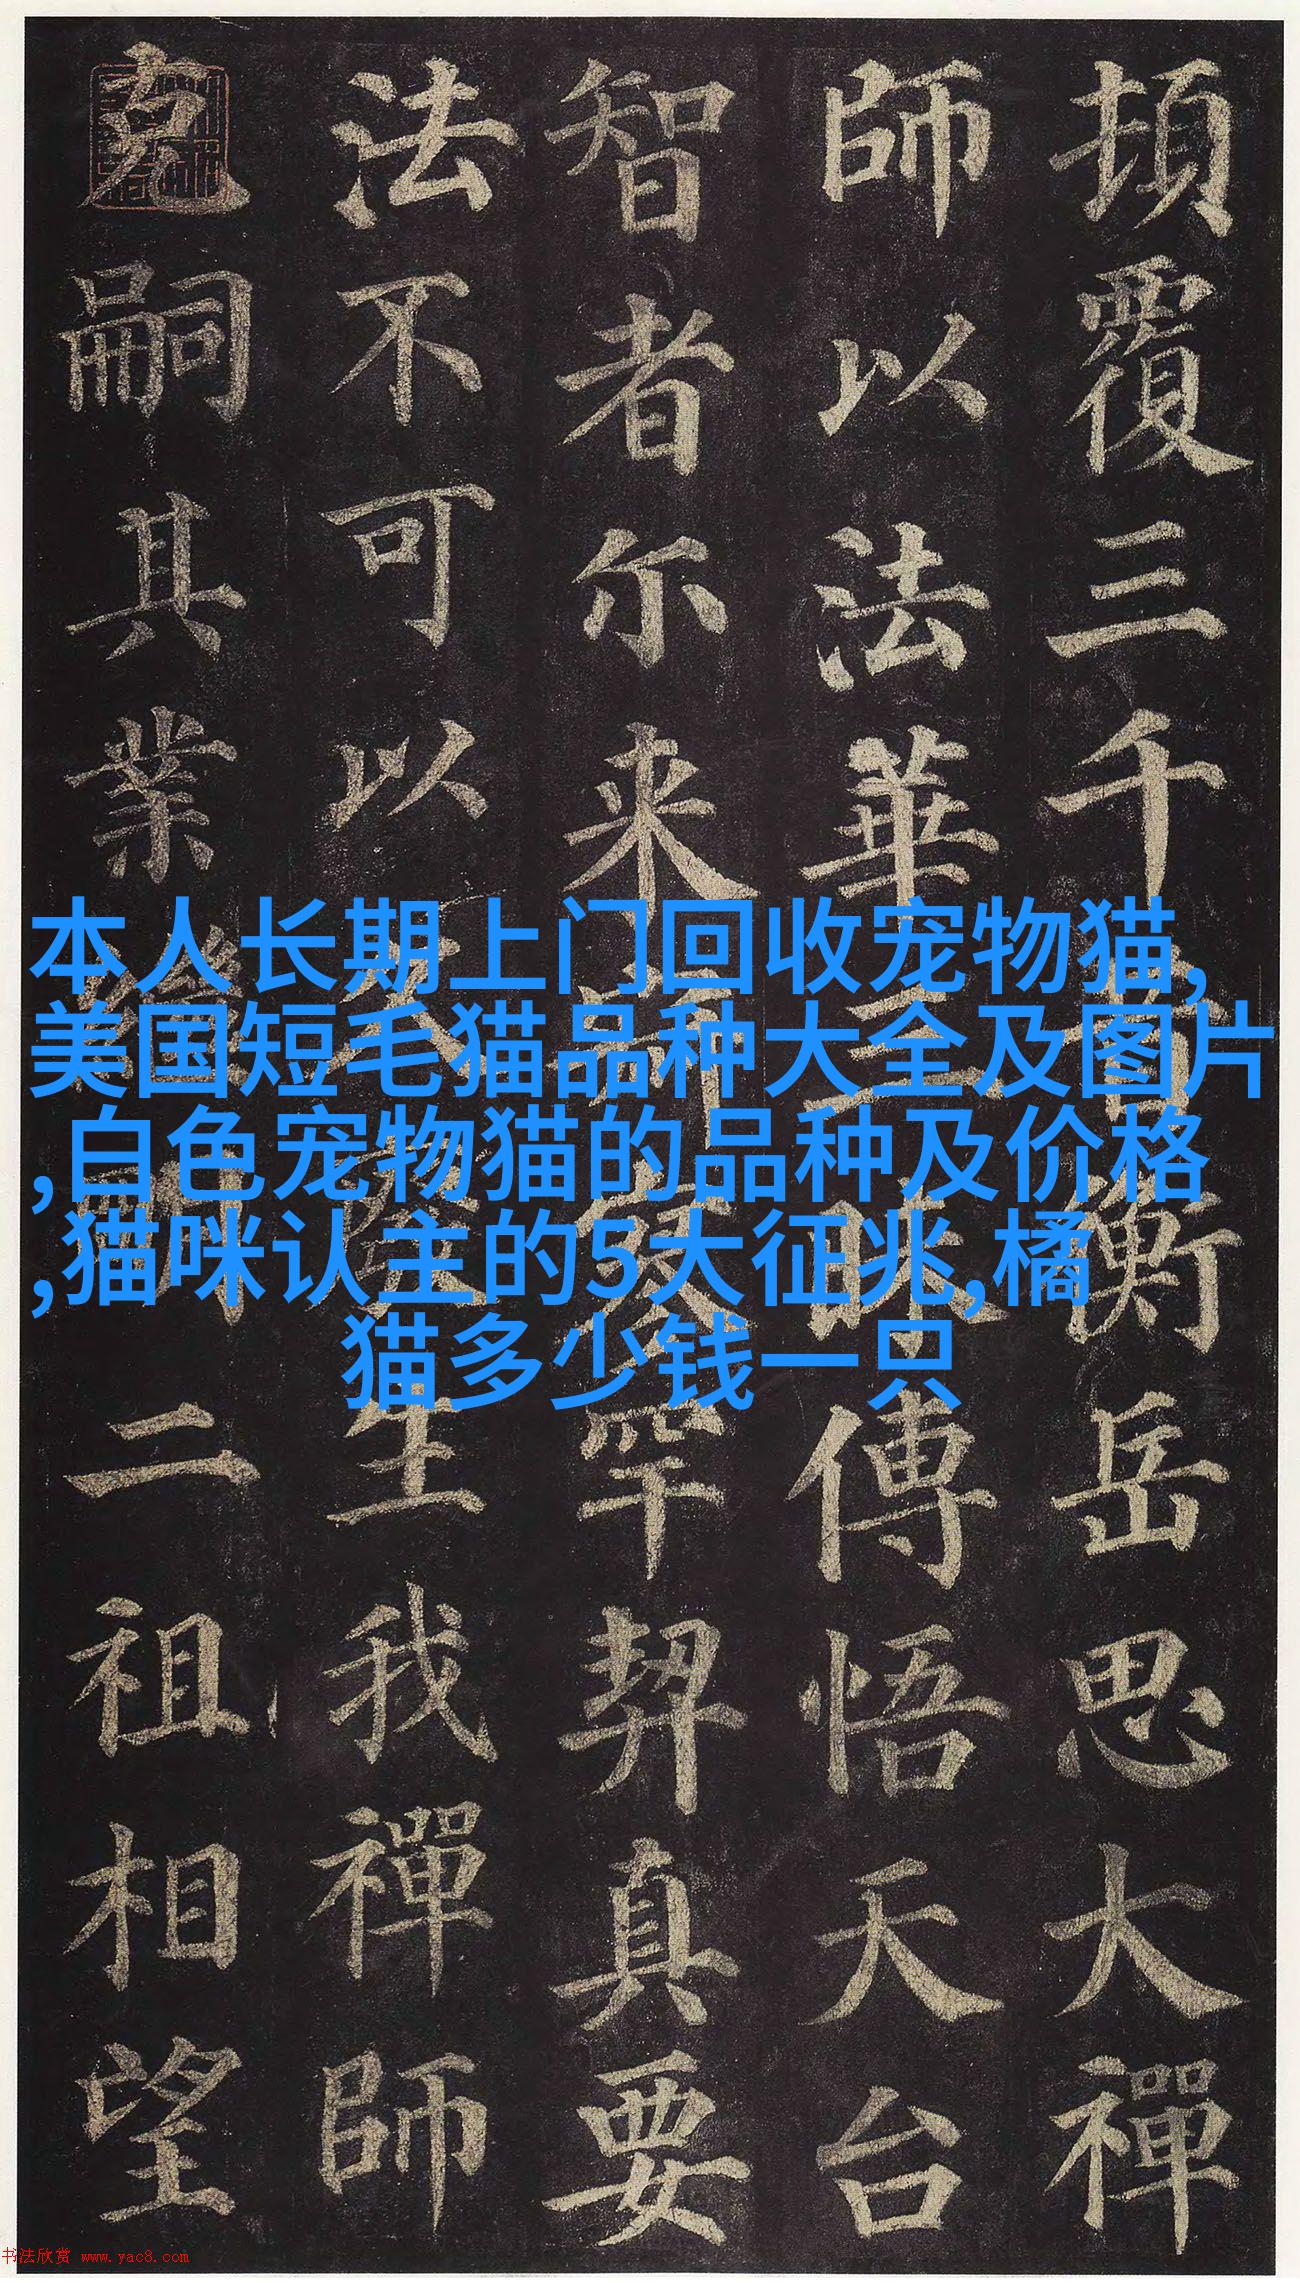 頂覆三千昔衡岳思大禪
師以法華三昧傳悟天台
智者尓来罕契真要
法不可以生我禪師
克嗣其業二祖相望
本人长期上门回收宠物猫,
美国短毛猫品种大全及图片
,白色宠物猫的品种及价格
,猫咪认主的5大征兆,橘
猫多少钱一只
书法欣赏 www.yac8.com